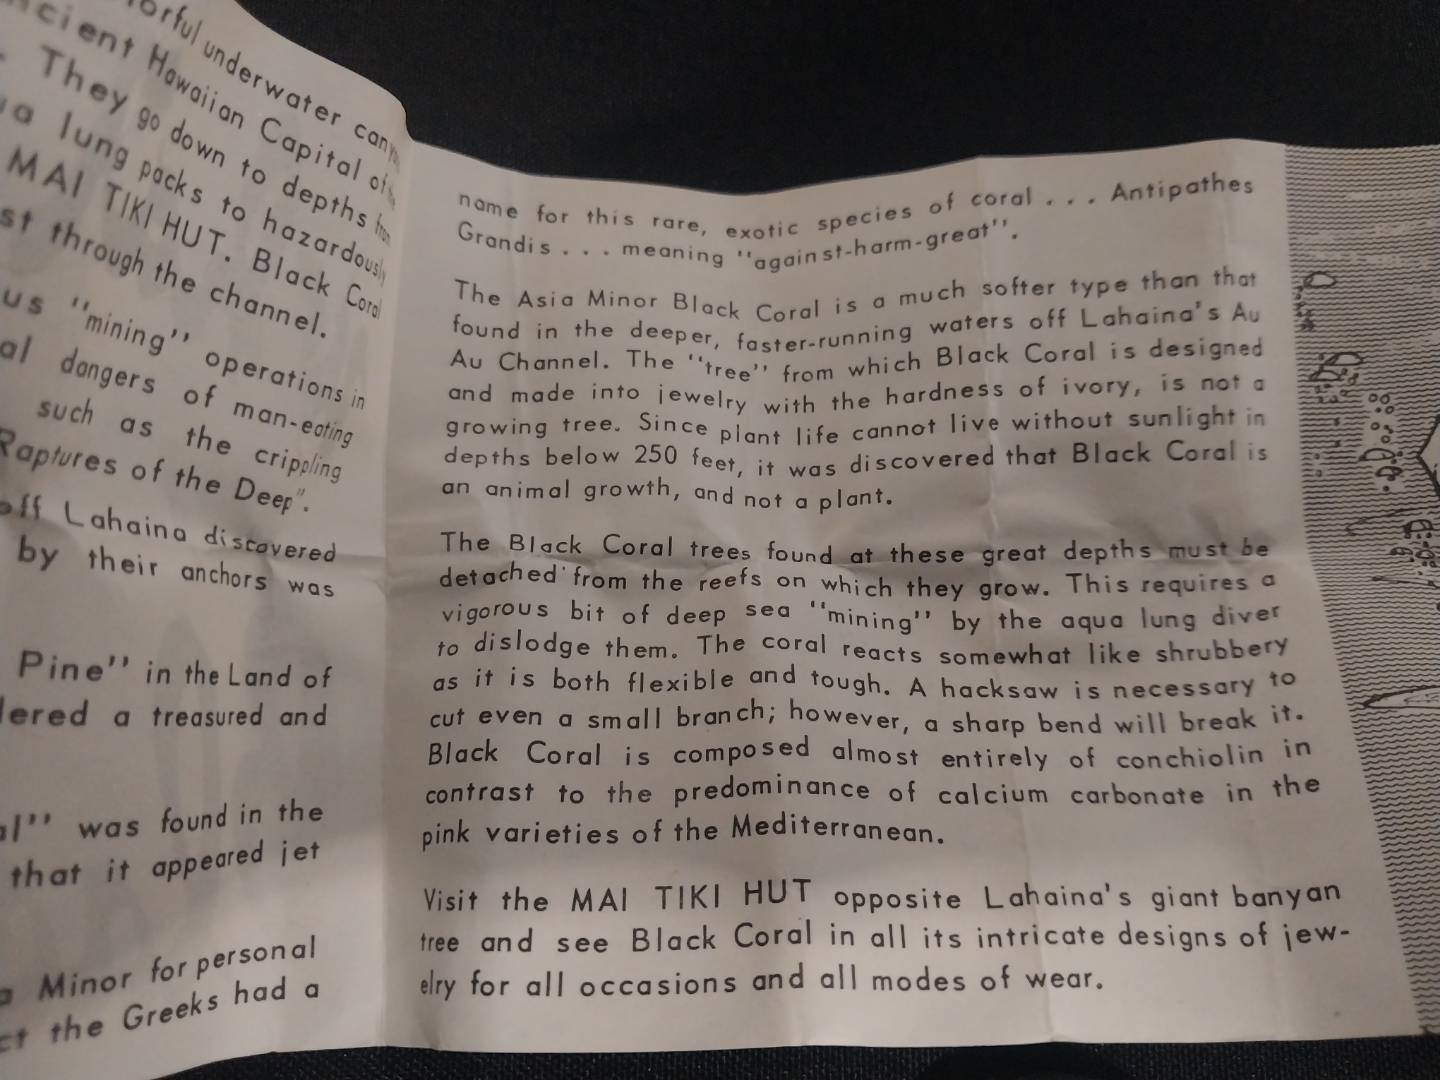 underwater
cient Hawaiian Capital of
They go down to depths from
lung packs to hazardously
MAI TIKI HUT. Black Coral
st through the channel.
us "mining" operations in
al dangers of man-eating
such as the crippling
Raptures of the Deep".
off Lahaina discovered
by their anchors was
Pine" in the Land of
dered a treasured and
al" was found in the
that it appeared jet
Minor for personal
the Greeks had a
name for this rare, exotic species of coral . . . Antipathes
Grandis . . . meaning "against-harm-great".
The Asia Minor Black Coral is a much softer type than that
found in the deeper, faster-running waters off Lahaina's Au
Au Channel. The "tree" from which Black Coral is designed
and made into jewelry with the hardness of ivory, is not a
growing tree. Since plant life cannot live without sunlight in
depths below 250 feet, it was discovered that Black Coral is
an animal growth, and not a plant.
The Black Coral trees found at these great depths must be
detached from the reefs on which they grow. This requires a
vigorous bit of deep sea "mining" by the aqua lung diver
to dislodge them. The coral reacts somewhat like shrubbery
as it is both flexible and tough. A hacksaw is necessary to
cut even a small branch; however, a sharp bend will break it.
Black Coral is composed almost entirely of conchiolin in
contrast to the predominance of calcium carbonate in the
pink varieties of the Mediterranean.
Visit the MAI TIKI HUT opposite Lahaina's giant banyan
tree and see Black Coral in all its intricate designs of jew-
elry for all occasions and all modes of wear.